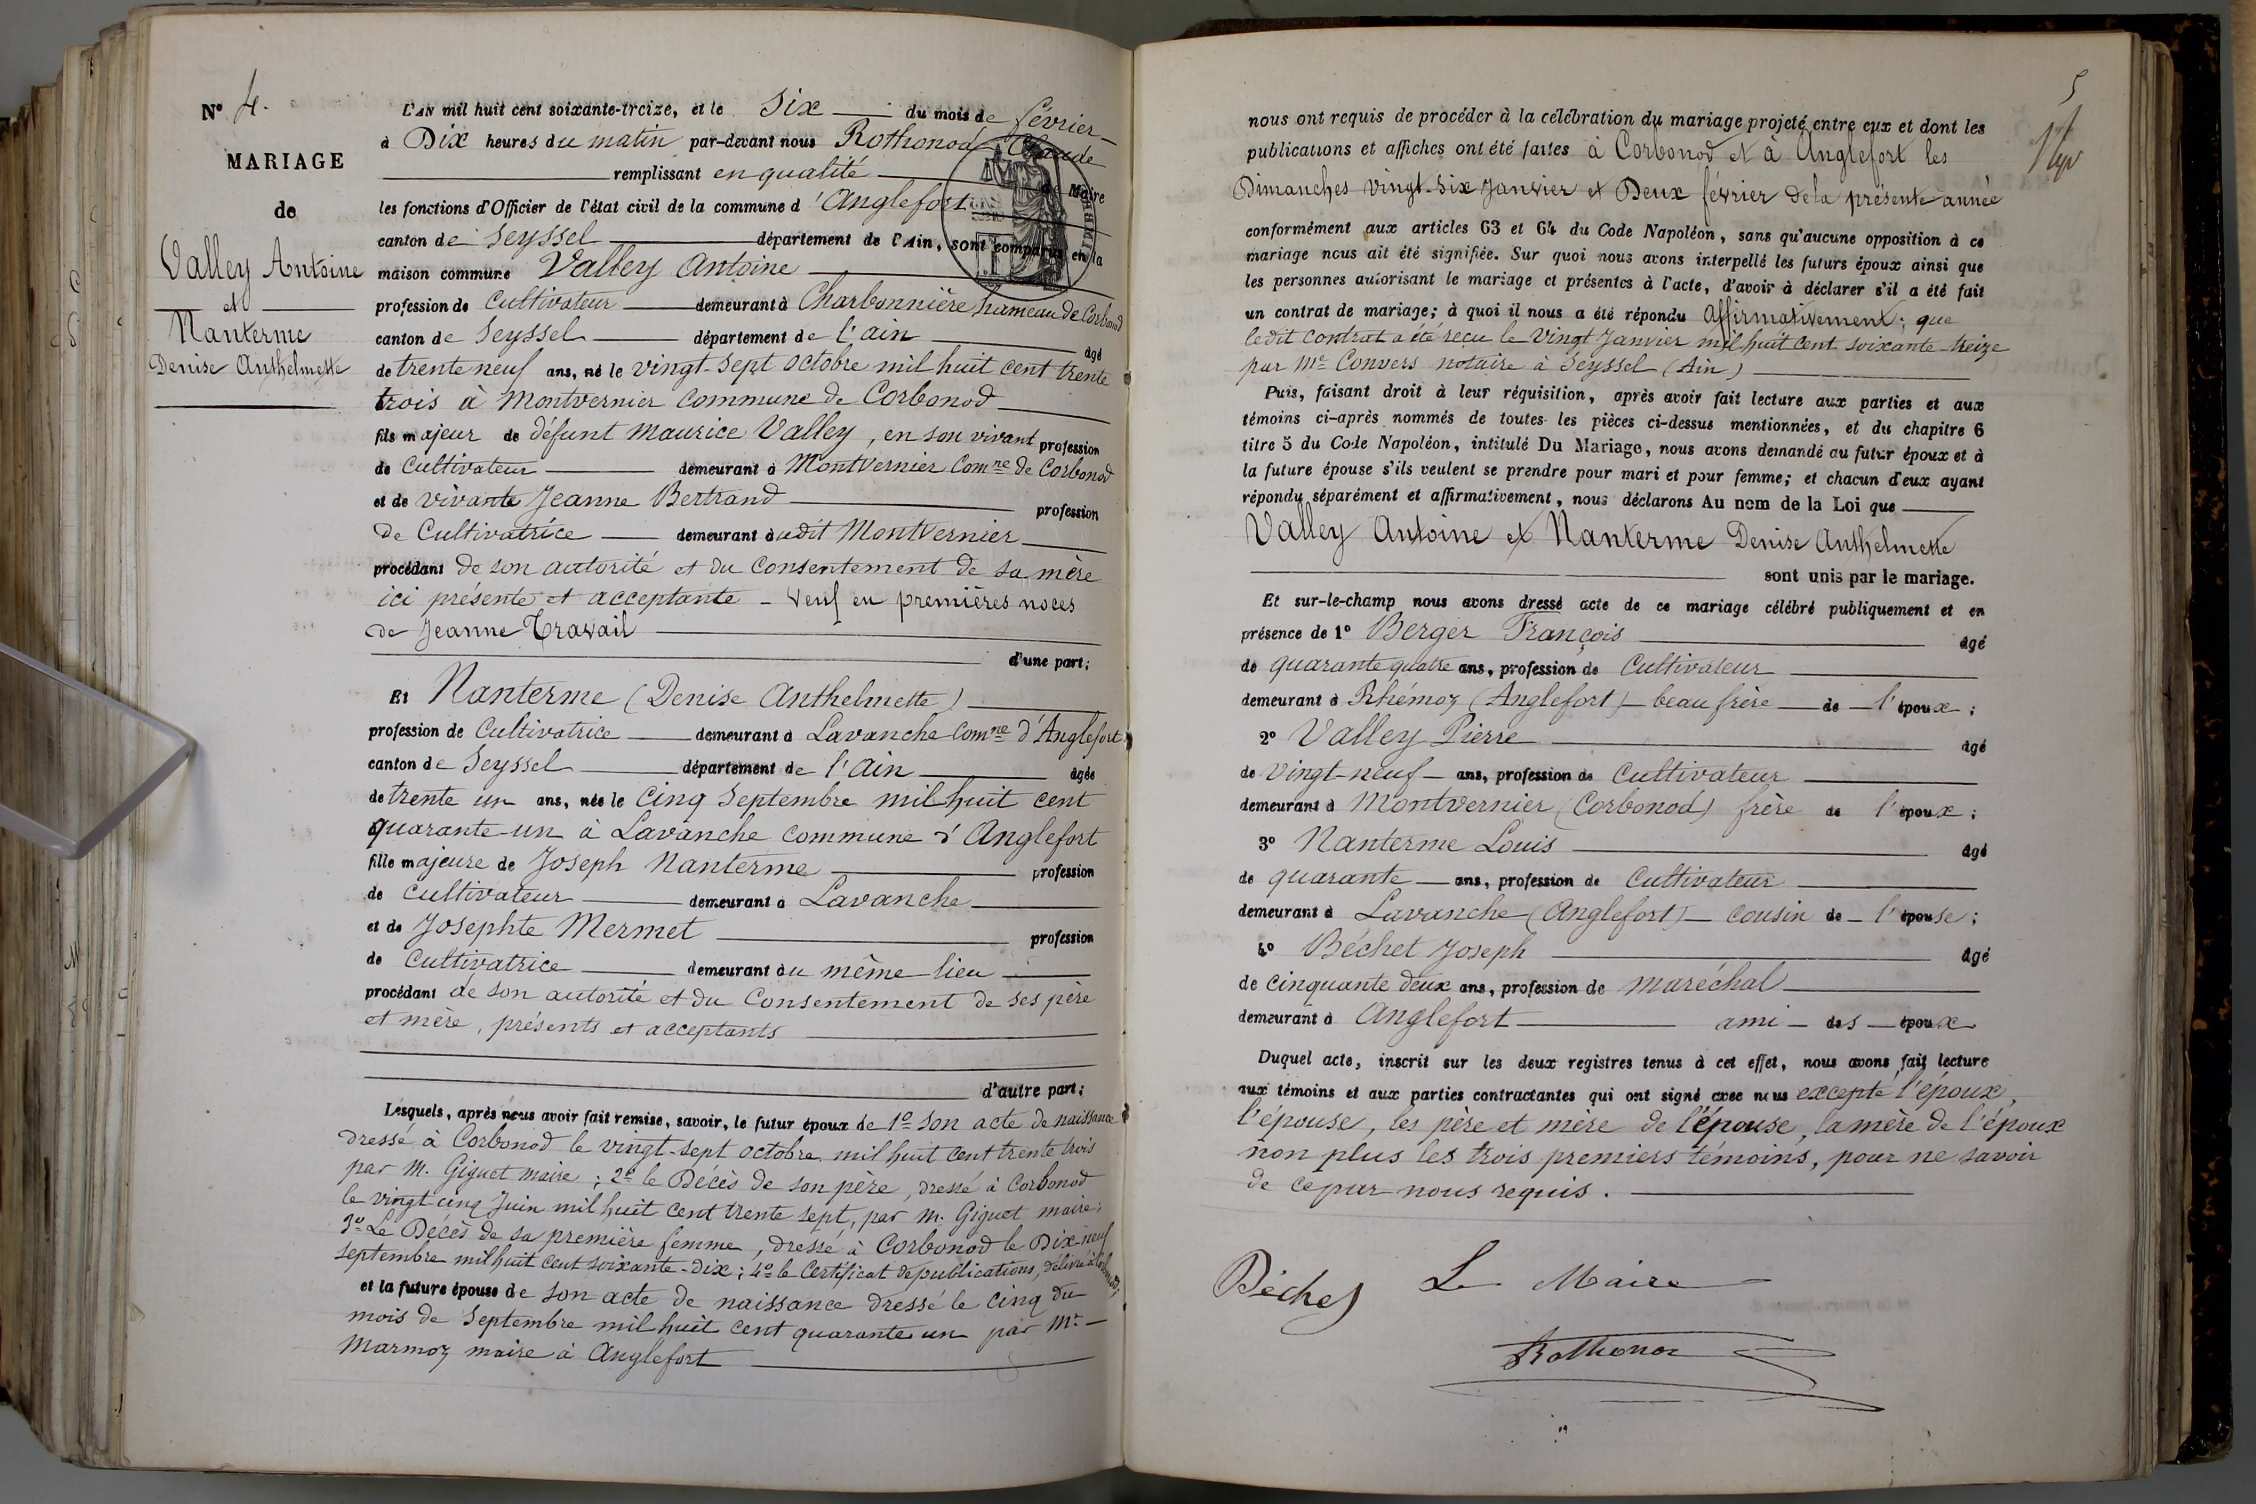 N° 4.
MARIAGE
de
Valley Antoine
et
Nanterme
Denise Anthelmette
L'AN mil huit cent soixante-treize, et le Six du mois de février
à Dix heures du matin par-devant nous Rothonod Claude
remplissant en qualité de Maire
les fonctions d'Officier de l'état civil de la commune d'Anglefort
canton de Seyssel département de l'Ain, sont comparus en la
maison commune Valley Antoine
profession de Cultivateur demeurant à Charbonnière hameau de Corbonod
canton de Seyssel département de l'ain âgé
de trente neuf ans, né le vingt-sept octobre mil huit cent trente
trois à Montvernier commune de Corbonod
fils majeur de défunt Maurice Valley, en son vivant profession
de Cultivateur demeurant à Montvernier Comne de Corbonod
et de vivante Jeanne Bertrand profession
de Cultivatrice demeurant audit Montvernier
procédant de son autorité et du consentement de sa mère
ici présente et acceptante - Veuf en premières noces
de Jeanne Travail
d'une part;
Et Nanterme (Denise Anthelmette)
profession de Cultivatrice demeurant à Lavanche Comne d'Anglefort
canton de Seyssel département de l'ain âgée
de trente un ans, née le cinq Septembre mil huit cent
quarante-un à Lavanche commune d'Anglefort
fille majeure de Joseph Nanterme profession
de cultivateur demeurant à Lavanche
et de Josephte Mermet profession
de cultivatrice demeurant au même lieu
procédant de son autorité et du consentement de ses père
et mère, présents et acceptants
d'autre part;
Lesquels, après nous avoir fait remise, savoir, le futur époux de 1° son acte de naissance
dressé à Corbonod le vingt-sept octobre mil huit cent trente trois
par M. Giguet maire; 2° le Décès de son père, dressé à Corbonod
le vingt cinq Juin mil huit cent trente sept, par M. Giguet maire;
3° Le Décès de sa première femme, dressé à Corbonod le Dix-neuf
septembre mil huit cent soixante-dix; 4° le Certificat de publications, délivré à Corbonod;
et la future épouse de son acte de naissance dressé le cinq du
mois de Septembre mil huit cent quarante un par Mr
Marmoz maire à Anglefort
5
nous ont requis de procéder à la célébration du mariage projeté entre eux et dont les
publications et affiches ont été faites à Corbonod et à Anglefort les
Dimanches vingt-six Janvier et Deux février de la présente année
conformément aux articles 63 et 64 du Code Napoléon, sans qu'aucune opposition à ce
mariage nous ait été signifiée. Sur quoi nous avons interpellé les futurs époux ainsi que
les personnes autorisant le mariage et présentes à l'acte, d'avoir à déclarer s'il a été fait
un contrat de mariage; à quoi il nous a été répondu Affirmativement; que
ledit contrat a été reçu le Vingt Janvier mil huit cent soixante-treize
par Me Convers notaire à Seyssel (Ain)
Puis, faisant droit à leur réquisition, après avoir fait lecture aux parties et aux
témoins ci-après nommés de toutes les pièces ci-dessus mentionnées, et du chapitre 6
titre 5 du Code Napoléon, intitulé Du Mariage, nous avons demandé au futur époux et à
la future épouse s'ils veulent se prendre pour mari et pour femme; et chacun d'eux ayant
répondu séparément et affirmativement, nous déclarons Au nom de la Loi que
Valley Antoine et Nanterme Denise Anthelmette
sont unis par le mariage.
Et sur-le-champ nous avons dressé acte de ce mariage célébré publiquement et en
présence de 1° Berger François âgé
de quarante quatre ans, profession de Cultivateur
demeurant à Rhémoz (Anglefort) beau frère de l'époux;
2° Valley Pierre âgé
de vingt-neuf ans, profession de Cultivateur
demeurant à Montvernier (Corbonod) frère de l'époux;
3° Nanterme Louis âgé
de quarante ans, profession de Cultivateur
demeurant à Lavanche (Anglefort) cousin de l'épouse;
4° Béchet Joseph âgé
de cinquante deux ans, profession de maréchal
demeurant à Anglefort ami des époux
Duquel acte, inscrit sur les deux registres tenus à cet effet, nous avons fait lecture
aux témoins et aux parties contractantes qui ont signé avec nous excepté l'époux,
l'épouse, les père et mère de l'épouse, la mère de l'époux
non plus les trois premiers témoins, pour ne savoir
de ce par nous requis.
Béchet
Le Maire
Rothonod